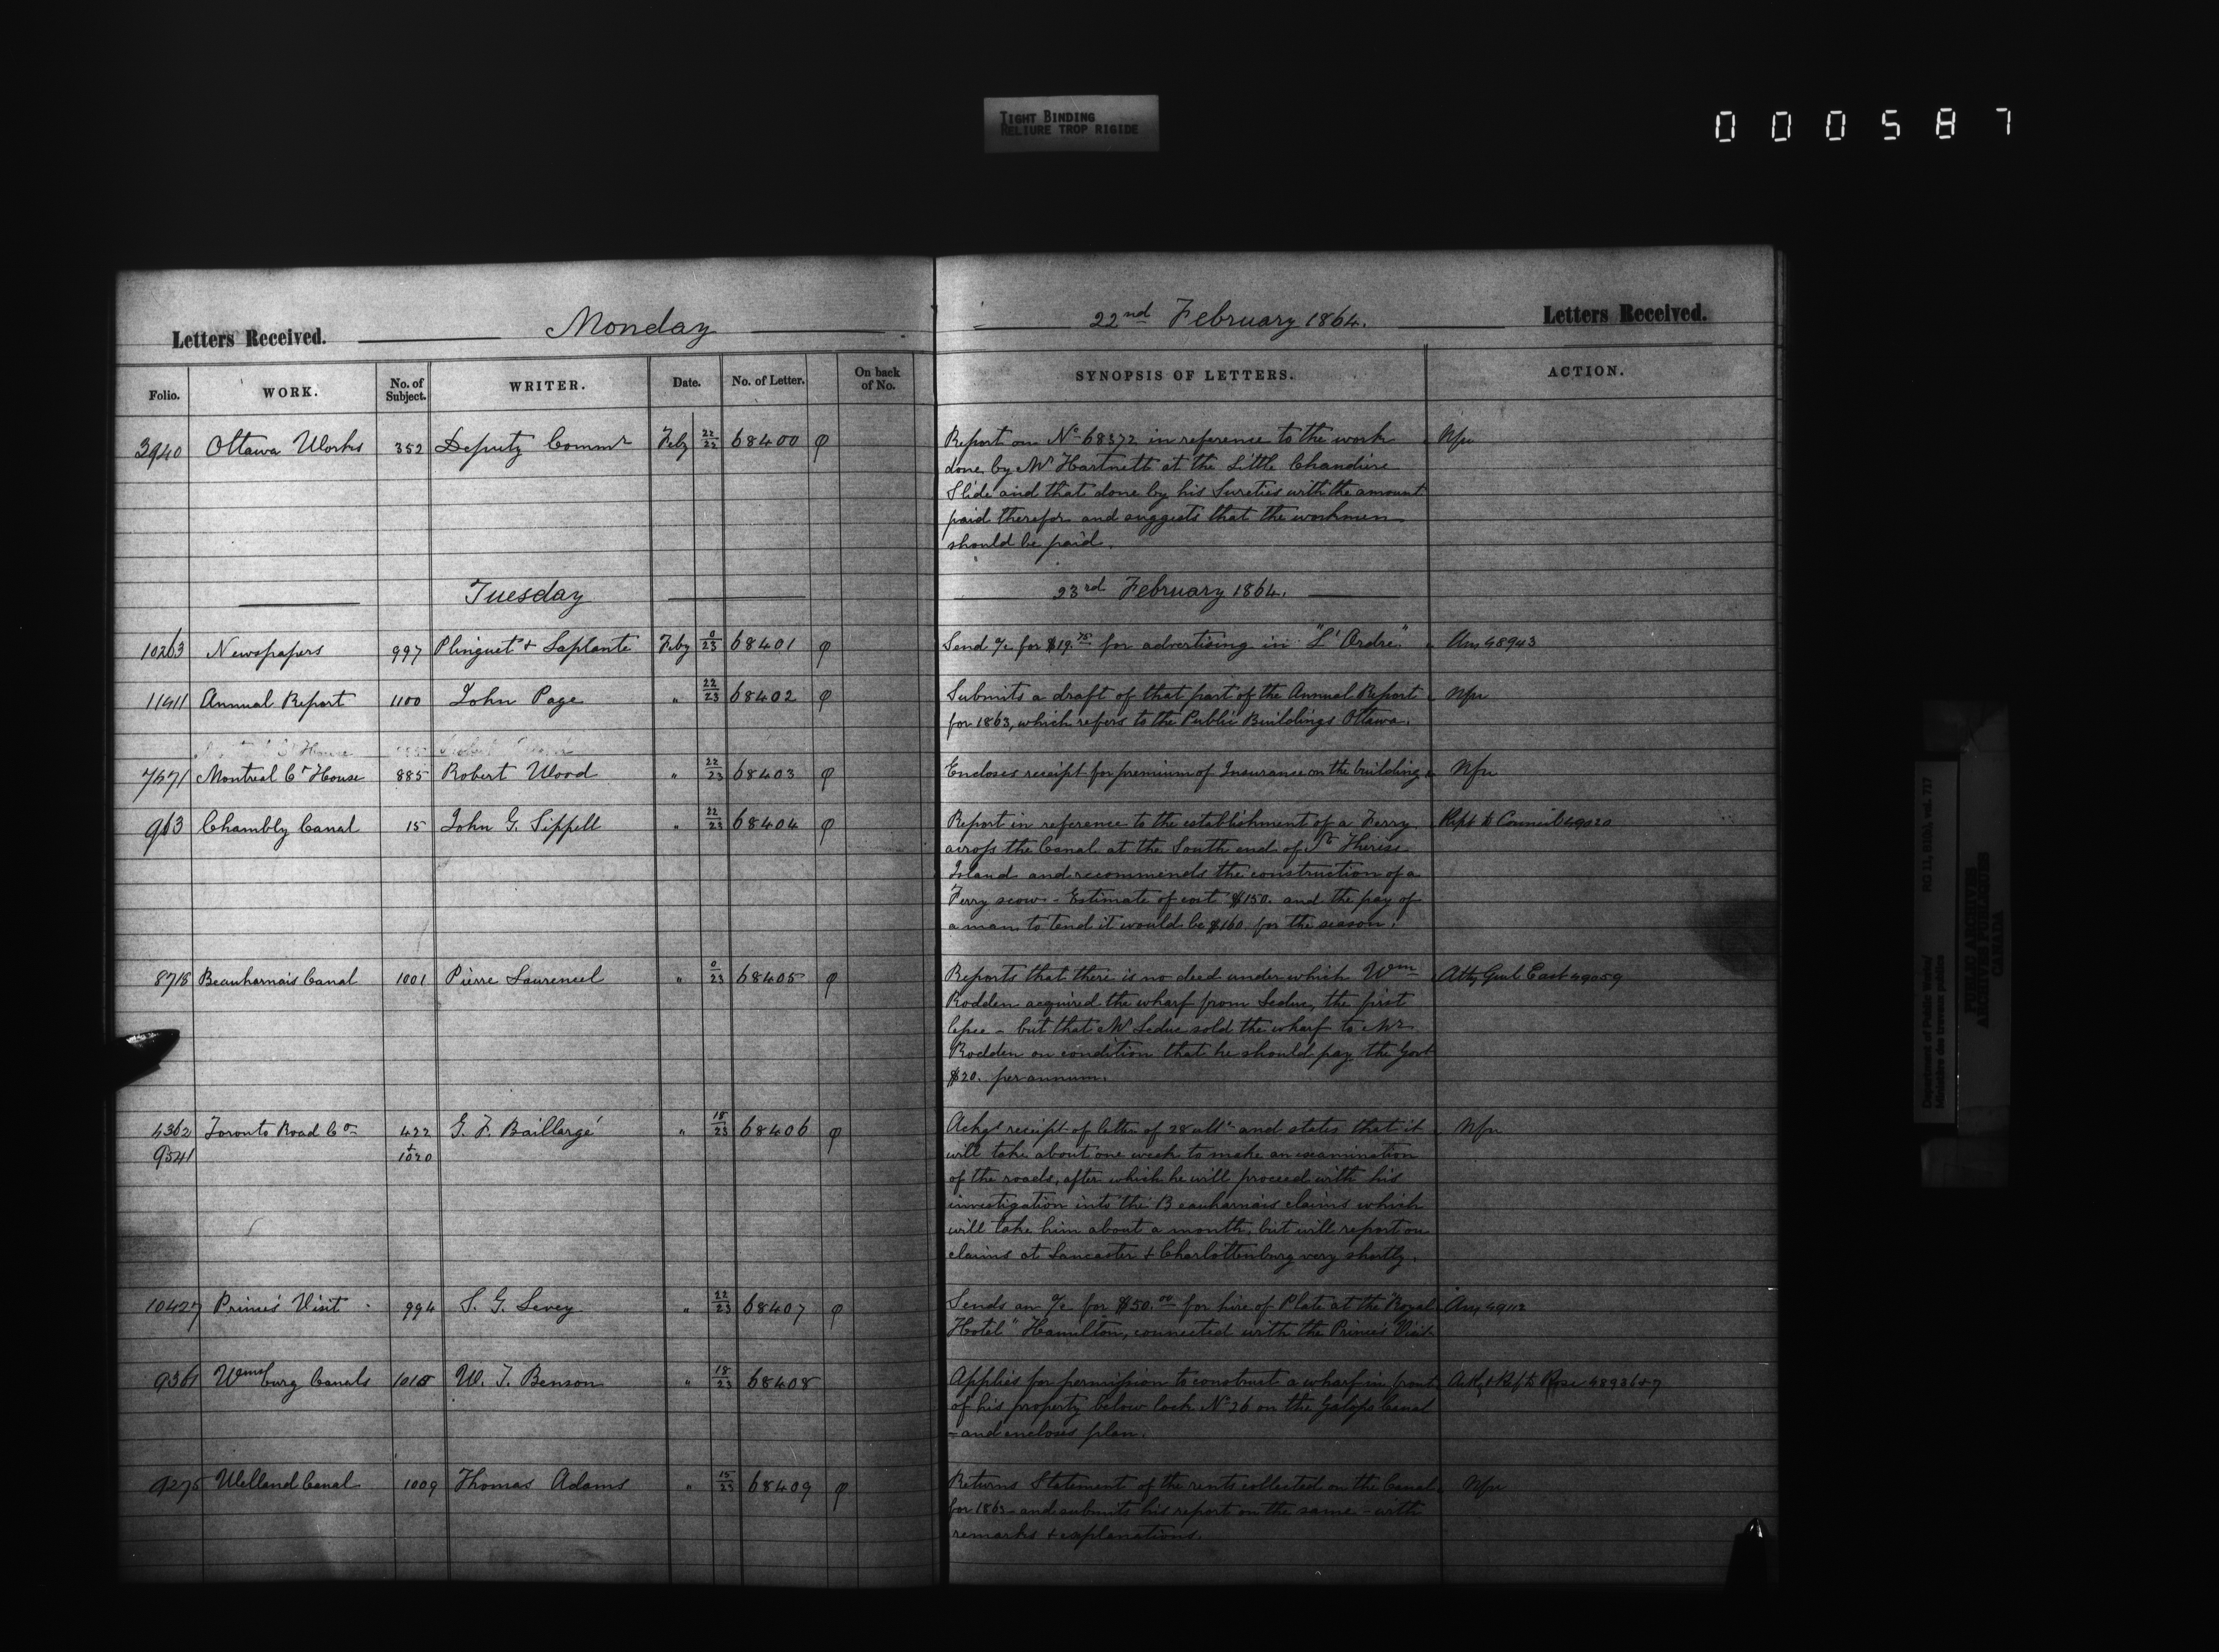 TIGHT BINDING
RELIURE TROP RIGIDE
000587
Letters Received. Monday
22nd February 1864. Letters Received.
Folio. WORK. No. of Subject. WRITER. Date. No. of Letter. On back of No. SYNOPSIS OF LETTERS. ACTION.
3940 Ottawa Works 352 Deputy Commr Feby 22/22 68400 φ Report on No 68372 in reference to the work Nfu
done by Mr Hartnett at the Little Chaudiere
Slide and that done by his Sureties with the amount
paid therefor and suggests that the workmen
should be paid.
Tuesday 23rd February 1864.
10263 Newspapers 997 Plinguet & Laplante Feby 0/23 68401 φ Send a/c for $19.75 for advertising in "L'Ordre" 48943
11911 Annual Report 1100 John Page " 22/23 68402 φ Submits a draft of that part of the Annual Report Nfu
for 1863, which refers to the Public Buildings Ottawa.
7571 Montreal Ct House 885 Robert Wood " 22/23 68403 φ Encloses receipt for premium of Insurance on the building Nfu
963 Chambly Canal 15 John G. Sippell " 22/23 68404 φ Report in reference to the establishment of a Ferry Rept to Council 49020
across the Canal at the South end of St Therese
Island and recommends the construction of a
Ferry scow - Estimate of cost $150. and the pay of
a man to tend it would be $160 for the season.
8718 Beauharnais Canal 1001 Pierre Laurencel " 0/23 68405 φ Reports that there is no deed under which Wm Atty Genl East 49059
Rodden acquired the wharf from Leduc, the first
lessee - but that Mr Leduc sold the wharf to Mr
Rodden on condition that he should pay the Govt
$20. per annum.
4362 Toronto Road Co 422 G. F. Baillargé " 18/23 68406 φ Ackgs receipt of letter of 28 ulto and states that it Nfu
9541 + 1020 will take about one week to make an examination
of the roads, after which he will proceed with his
investigation into the Beauharnais claims which
will take him about a month, but will report on
claims at Lancaster & Charlottenburg very shortly.
10427 Prince's Visit 994 S. G. Levey " 22/23 68407 φ Sends an a/c for $50.00 for hire of Plate at the "Royal 49112
Hotel" Hamilton, connected with the Prince's Visit
9361 Wmsburg Canals 1015 W. T. Benson " 18/23 68408 Applies for permission to construct a wharf in front Ack & Ref to Rose 48936+7
of his property below lock No 26 on the Galops Canal
- and encloses plan.
9275 Welland Canal 1009 Thomas Adams " 15/23 68409 φ Returns Statement of the rents collected on the Canal Nfu
for 1863 and submits his report on the same - with
remarks & explanations.
Department of Public Works/
Ministère des travaux publics
RG 11, B1(b), vol. 717
PUBLIC ARCHIVES
ARCHIVES PUBLIQUES
CANADA